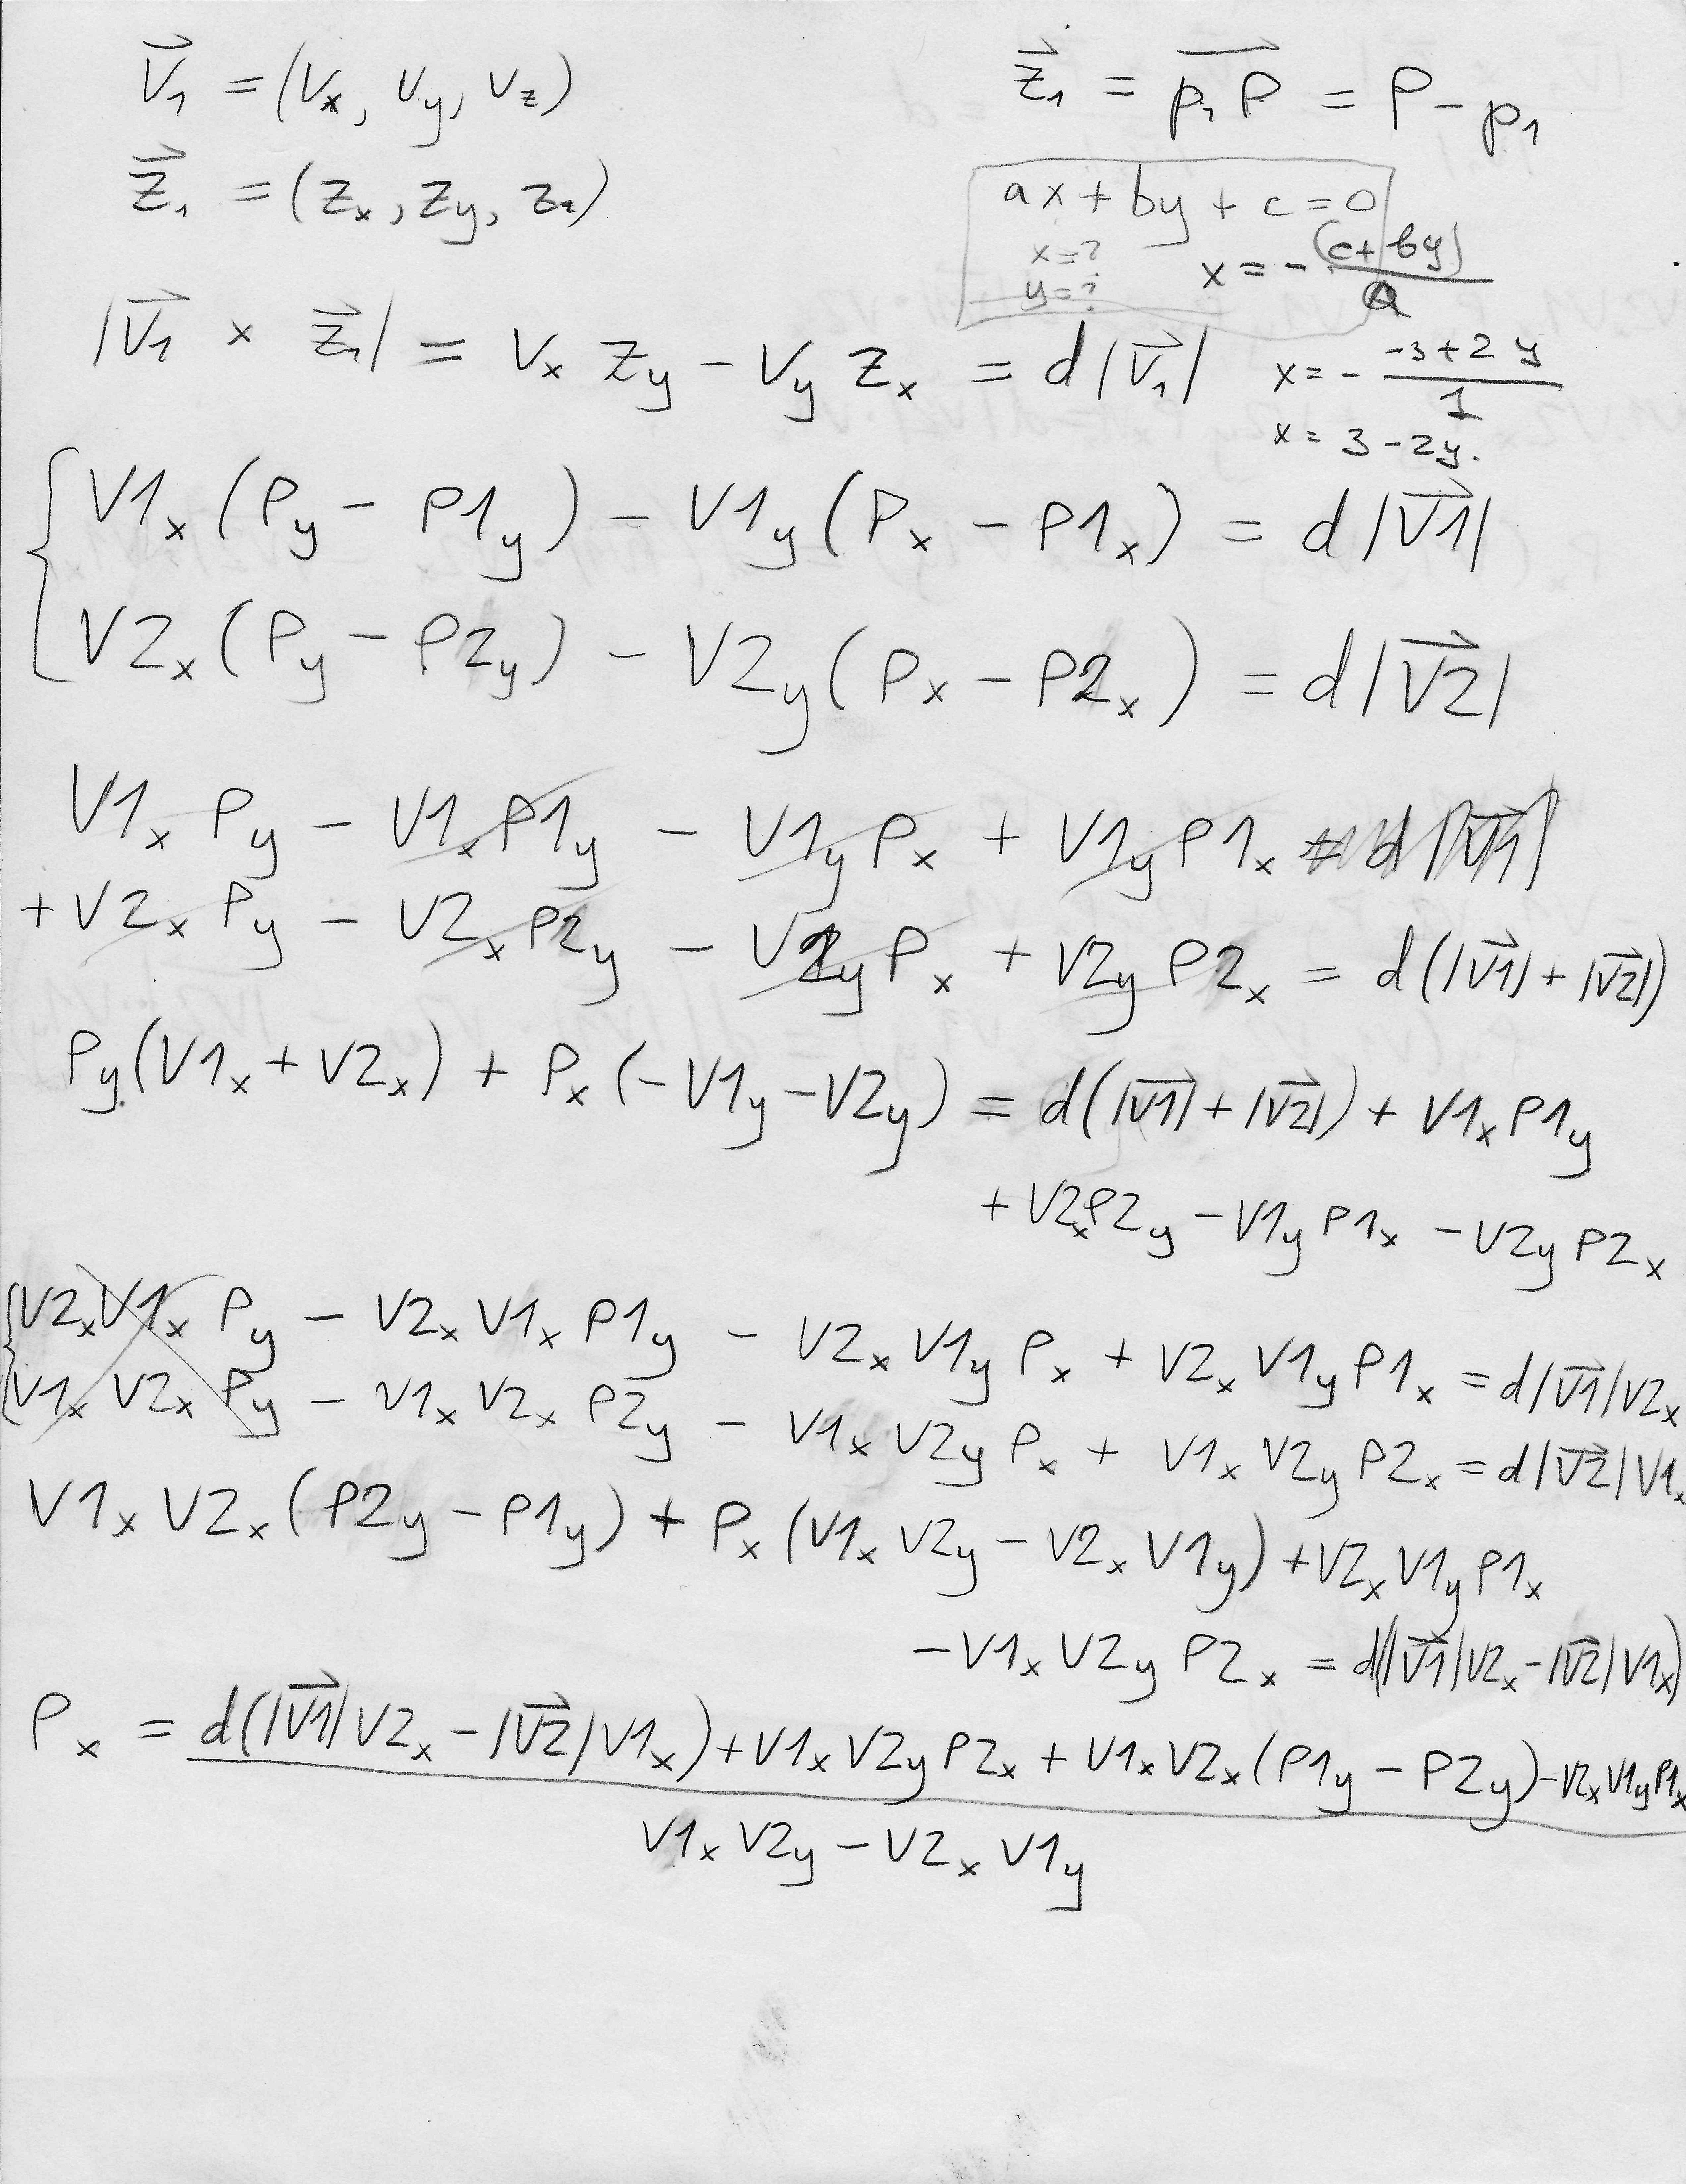 V⃗₁ = (Vₓ, V_y, V_z)
z⃗₁ = p₁P⃗ = P - p₁
z⃗₁ = (zₓ, z_y, z_z)
ax + by + c = 0
x = ?
y = ?
x = - (c + by) / a
|V⃗₁ × z⃗₁| = Vₓ z_y - V_y zₓ = d |V⃗₁|
x = - (-3 + 2y) / 1
x = 3 - 2y.
{ V1ₓ (P_y - P1_y) - V1_y (Pₓ - P1ₓ) = d |V⃗1|
V2ₓ (P_y - P2_y) - V2_y (Pₓ - P2ₓ) = d |V⃗2|
V1ₓ P_y - V1ₓ P1_y - V1_y Pₓ + V1_y P1ₓ = d |V⃗1|
+ V2ₓ P_y - V2ₓ P2_y - V2_y Pₓ + V2_y P2ₓ = d (|V⃗1| + |V⃗2|)
P_y (V1ₓ + V2ₓ) + Pₓ (-V1_y - V2_y) = d (|V⃗1| + |V⃗2|) + V1ₓ P1_y
+ V2ₓ P2_y - V1_y P1ₓ - V2_y P2ₓ
{ V2ₓ V1ₓ P_y - V2ₓ V1ₓ P1_y - V2ₓ V1_y Pₓ + V2ₓ V1_y P1ₓ = d |V⃗1| V2ₓ
V1ₓ V2ₓ P_y - V1ₓ V2ₓ P2_y - V1ₓ V2_y Pₓ + V1ₓ V2_y P2ₓ = d |V⃗2| V1ₓ
V1ₓ V2ₓ (P2_y - P1_y) + Pₓ (V1ₓ V2_y - V2ₓ V1_y) + V2ₓ V1_y P1ₓ
- V1ₓ V2_y P2ₓ = d (|V⃗1| V2ₓ - |V⃗2| V1ₓ)
Pₓ = d (|V⃗1| V2ₓ - |V⃗2| V1ₓ) + V1ₓ V2_y P2ₓ + V1ₓ V2ₓ (P1_y - P2_y) - V2ₓ V1_y P1ₓ
V1ₓ V2_y - V2ₓ V1_y